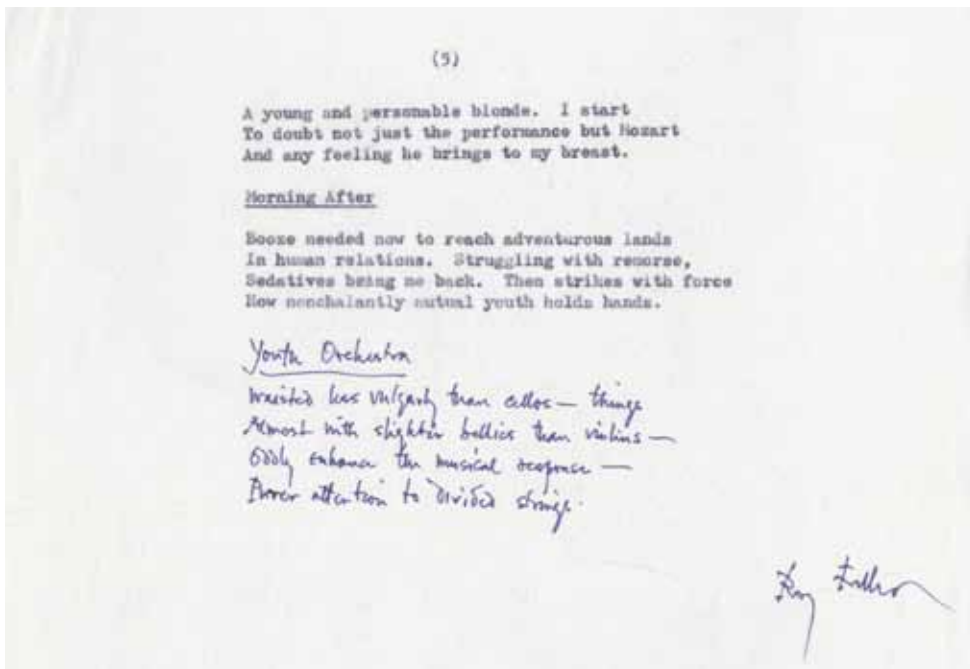 (5)
A young and personable blonde. I start
To doubt not just the performance but Mozart
And any feeling he brings to my breast.
Morning After
Booze needed now to reach adventurous lands
In human relations. Struggling with remorse,
Sedatives bring me back. Then strikes with force
How nonchalantly mutual youth holds hands.
Youth Orchestra
Waisted less vulgarly than cellos — things
Almost with slighter bellies than violins —
Oddly enhance the musical response —
attention to divided strings.
Roy Fuller